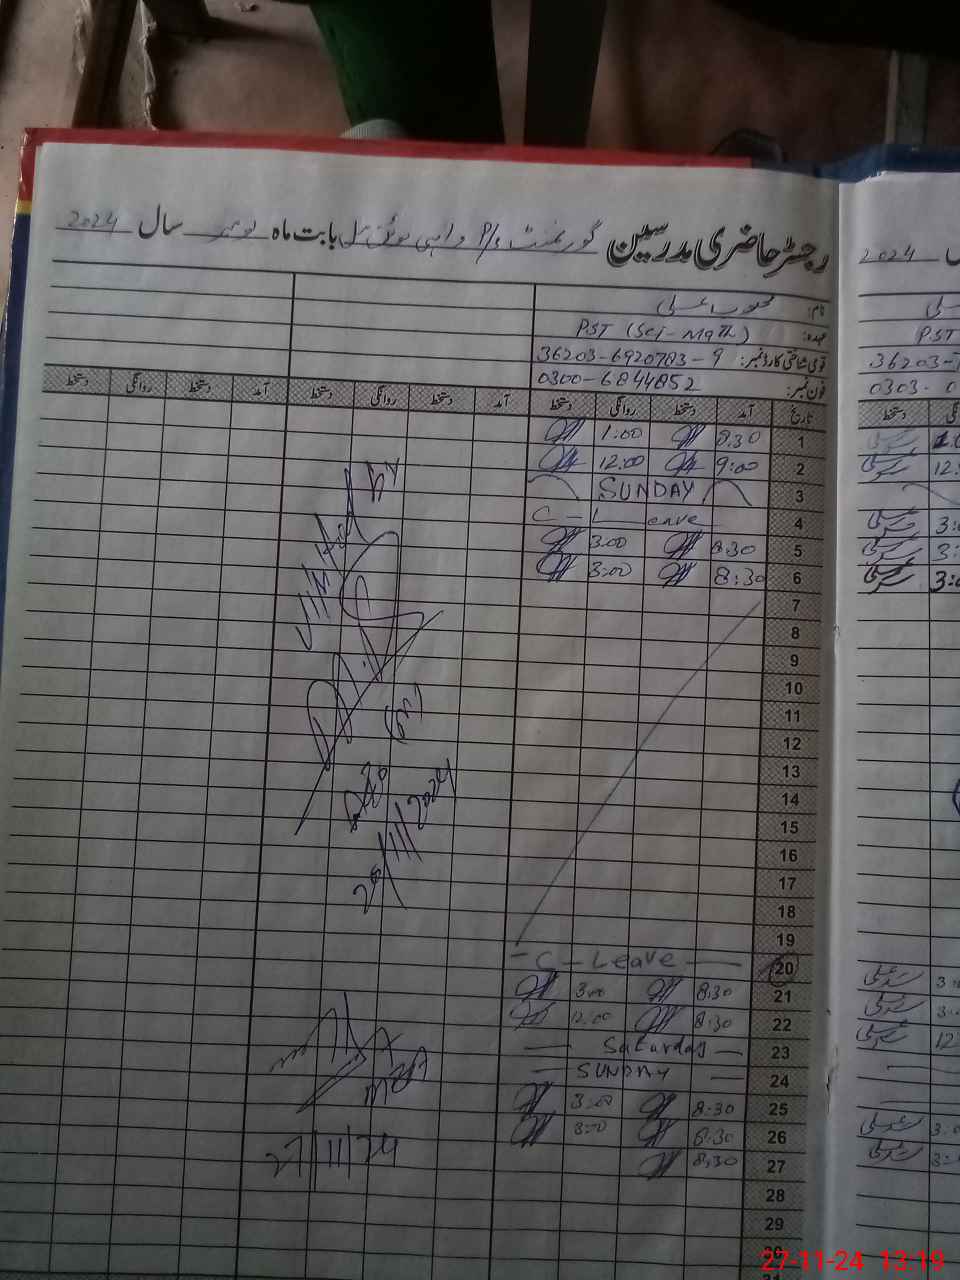 رجسٹر حاضری مدرسین گورنمنٹ P/s بابت ماہ نومبر سال 2024
نام:
عہدہ: PST (Sci-Math)
قومی شناختی کارڈ نمبر: 36203-6920783-9
فون نمبر: 0300-6844852
تاریخ آمد دستخط روانگی دستخط آمد دستخط روانگی دستخط
1 8.30 1:00
2 9:00 12:00
3 SUNDAY
4 C-Leave
5 8:30 3:00
6 8:30 3:00
7
8
9
10
11
12
13
14
15
16
17
18
19
20 C-Leave
21 8:30 3:00
22 8:30 12:00
23 Saturday
24 SUNDAY
25 8:30 3:00
26 8:30 3:00
27 8:30
28
29
30
Visited by
20/11/2024
27/11/24
2024
PST
36203-
0303-0
دستخط
27-11-24 13:19